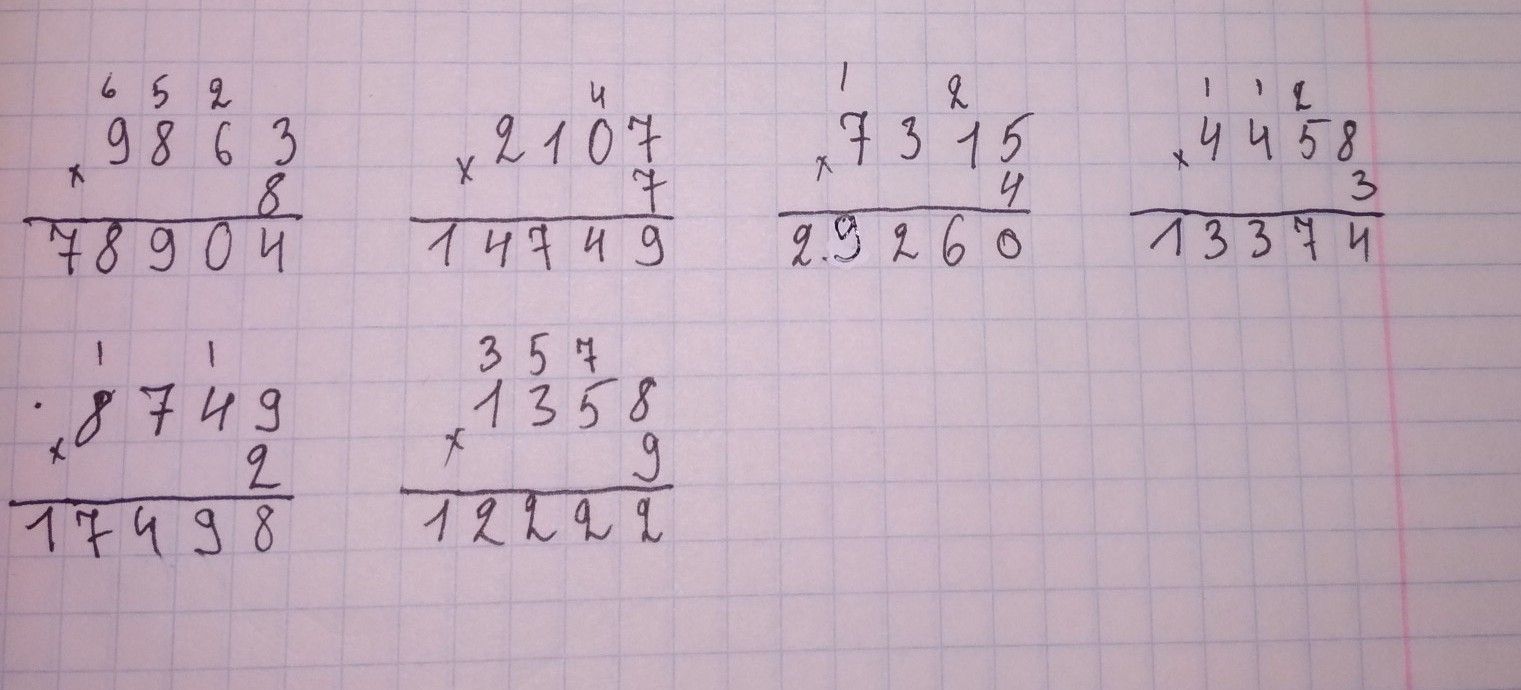 6 5 2
9863
x
8
78904
4
x 2107
7
14749
1 2
x 7315
4
2.9260
1 1 2
x 4458
3
13374
1 1
8749
x
2
17498
3 5 7
1358
x
9
12222